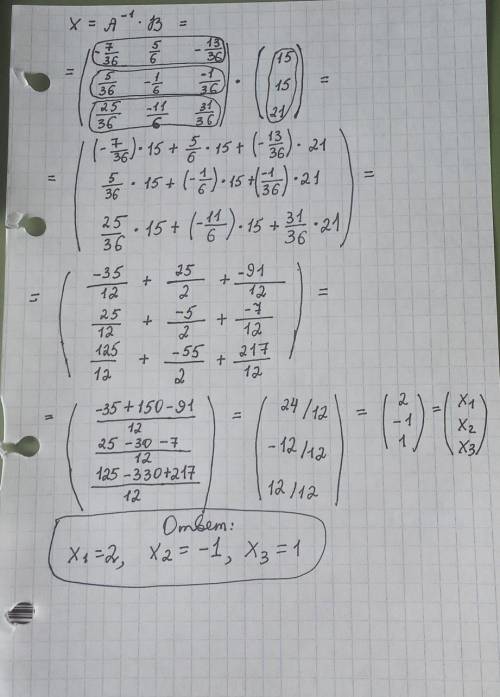 X = A⁻¹ · B =
= ( -7/36 5/6 -13/36 ) ( 15 )
( 5/36 -1/6 -1/36 ) · ( 15 ) =
( 25/36 -11/6 31/36 ) ( 21 )
( (-7/36) · 15 + 5/6 · 15 + (-13/36) · 21 )
= ( 5/36 · 15 + (-1/6) · 15 + (-1/36) · 21 ) =
( 25/36 · 15 + (-11/6) · 15 + 31/36 · 21 )
( -35/12 + 25/2 + -91/12 )
= ( 25/12 + -5/2 + -7/12 ) =
( 125/12 + -55/2 + 217/12 )
= ( (-35+150-91)/12 ) = ( 24/12 ) = ( 2 ) = ( X₁ )
( (25-30-7)/12 ) ( -12/12 ) ( -1 ) ( X₂ )
( (125-330+217)/12 ) ( 12/12 ) ( 1 ) ( X₃ )
Ответ:
X₁=2, X₂ = -1, X₃ = 1